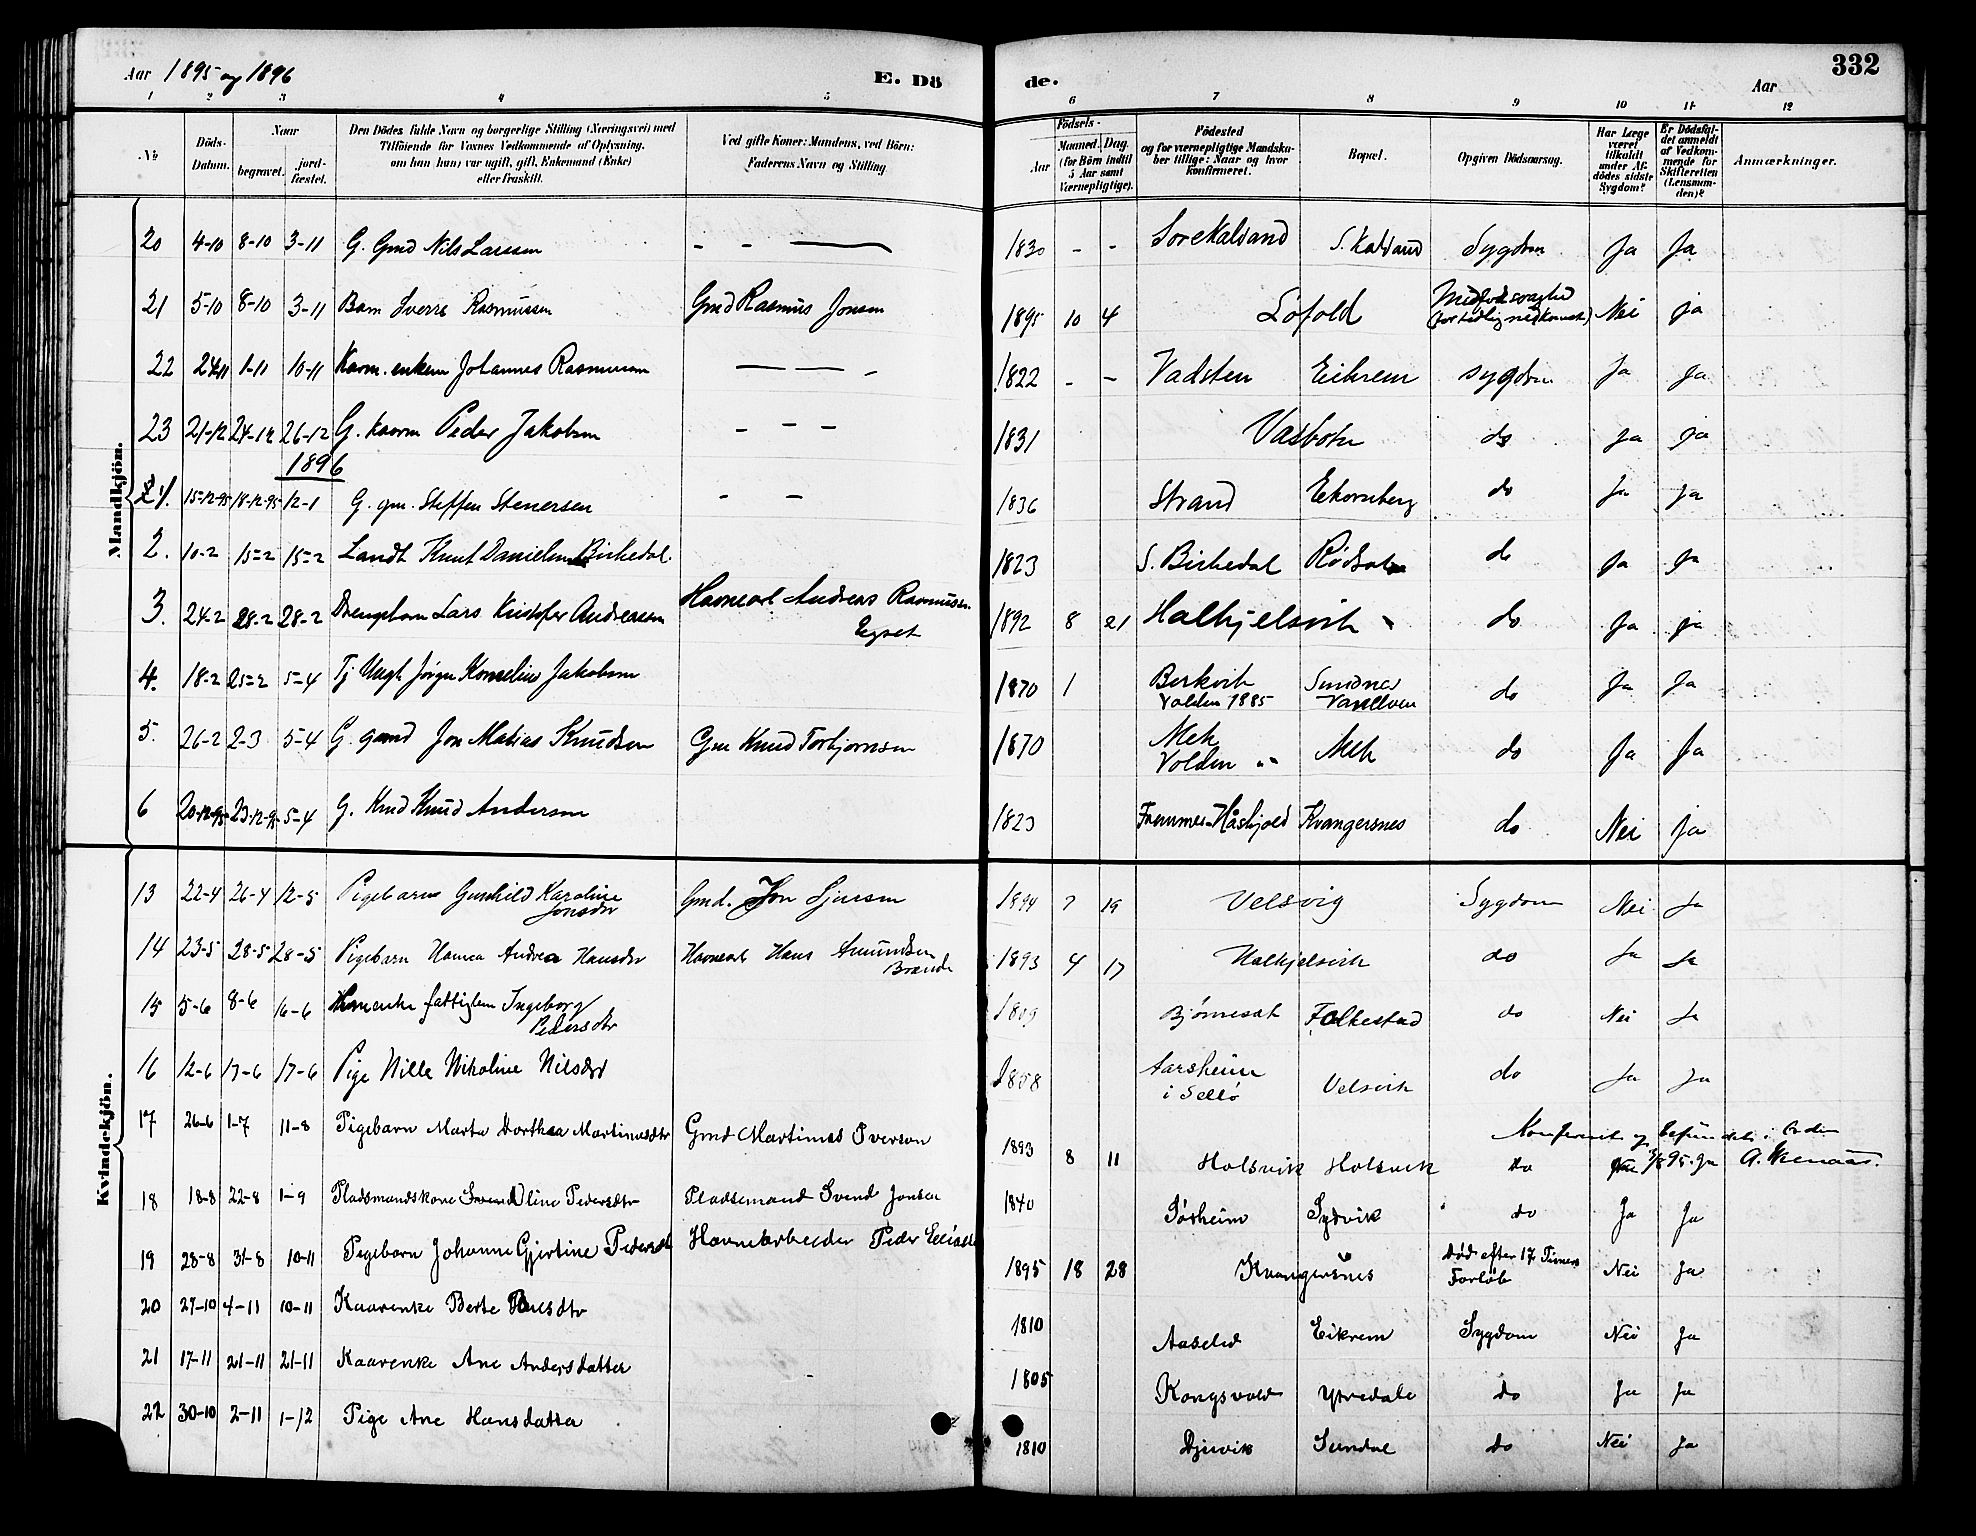 Aar 1895 og 1896 E. Dö de. Aar 332
1 2 3 4 5 6 7 8 9 10 11 12
No. Döds-Datum. Naar begravet. jordfæstet. Den Dödes fulde Navn og borgerlige Stilling (Næringsvei) med Tilföiende for Voxnes Vedkommende af Oplysning, om han (hun) var ugift, gift, Enkemand (Enke) eller fraskilt. Ved gifte Koner: Mandens, ved Börn: Faderens Navn og Stilling Födsels- Aar Maaned. Dag. (for Börn indtil 5 Aar samt Værnepligtige). Födested og for værnepligtige Mandskaber tillige: Naar og hvor konfirmeret. Bopæl. Opgiven Dödsaarsag. Har Læge været tilkaldt under Afdödes sidste Sygdom? Er Dödsfaldet anmeldt af Vedkommende for Skifteretten (Lensmanden)? Anmærkninger.
Mandkjön.
20 4-10 8-10 3-11 G. Gmd Nils Larssen - - — 1830 - - Sore Kalsand S. Kalsand Sygdom Ja Ja
21 5-10 8-10 3-11 Barn Sverre Rasmussen Gmd Rasmus Jonsen 1895 10 4 Løfold (for tidlig nedkomst) Nei ja
22 24-11 1-11 10-11 Kaarm. enkem Johannes Rasmussen — — - 1822 - - Vadsten Eikrem sygdom Ja ja
23 21-12 24-12 26-12 G. kaarm Peder Jakobsen - - - 1831 Vasbotn do ja ja
1896
1. 15-12-95 18-12-95 12-1 G. gm. Steffen Stenersen - - 1836 Strand Ekornberg do Ja ja
2. 10-2 15-2 15-2 Landh Knut Danielsen Birkedal. 1823 S. Birkedal Rødsat do Ja ja
3. 24-2 28-2 28-2 Drengebarn Lars Kristofer Andreassen Havnearb Andreas Rasmussen
Egset 1892 8 21 Halkjelsvik do Ja ja
4. 18-2 25-2 5-4 Tj Ungk Jørgen Kornelius Jakobsen 1870 1 Berkvik Sundnes do Ja Ja
Volden 1885 Vanelven
5. 26-2 2-3 5-4 G. gmd Jon Matias Knudsen Gm Knud Torbjornsen 1870 Mek Mek do Ja Ja
Volden "
6 20-12-95 23-12-95 5-4 G. Kmd Knud Andersen 1823 Fremmer-Håskjold Kvangersnes do Nei Ja
Kvindekjön.
13 22-4 26-4 12-5 Pigebarn Gunhild Karoline
Jonsdtr Gmd. Jon Sjursen 1894 7 19 Velsvig Sygdom Nei Ja
14 23-5 28-5 28-5 Pigebarn Hanna Andrea Hansdtr Havnearb Hans Amundsen
Brænde 1893 4 17 Halkjelsvik do Ja Ja
15 5-6 8-6 16-6 fattiglem Ingeborg
Pedersdtr 1809 Bjørneset Folkestad do Nei Ja
16 12-6 17-6 17-6 Pige Nille Nikoline Nilsdtr 1858 Aarsheim
i Sellø Velsvik do Ja Ja
17 26-6 1-7 11-8 Pigebarn Marta Dorthea Martinusdtr Gmd Martinus Iverson 1893 8 11 Holsvik Holsvik do Ja
18 18-8 22-8 1-9 Pladsmandskone Oline Pedersdtr Pladsemand Svend Jonsen 1840 Søsheim Sydvik do Ja Ja
19 28-8 31-8 10-11 Pigebarn Johanne Gjertine Pedersdtr Havnearbeider Peder Eliassen 1895 18 28 Kvangersnes Død efter 17 Timers
Forløb Nei Ja
20 27-10 4-11 10-11 Kaarenke Berte 1810 Aaseled Eikrem Sygdom Nei Ja
21 17-11 21-11 21-11 Kaarenke Ane Andersdatter 1805 Kongsvold Ytredale do Ja Ja
22 30-10 2-11 1-12 Pige Ane Hansdatter 1810 Djuvik Sundal do Nei Ja